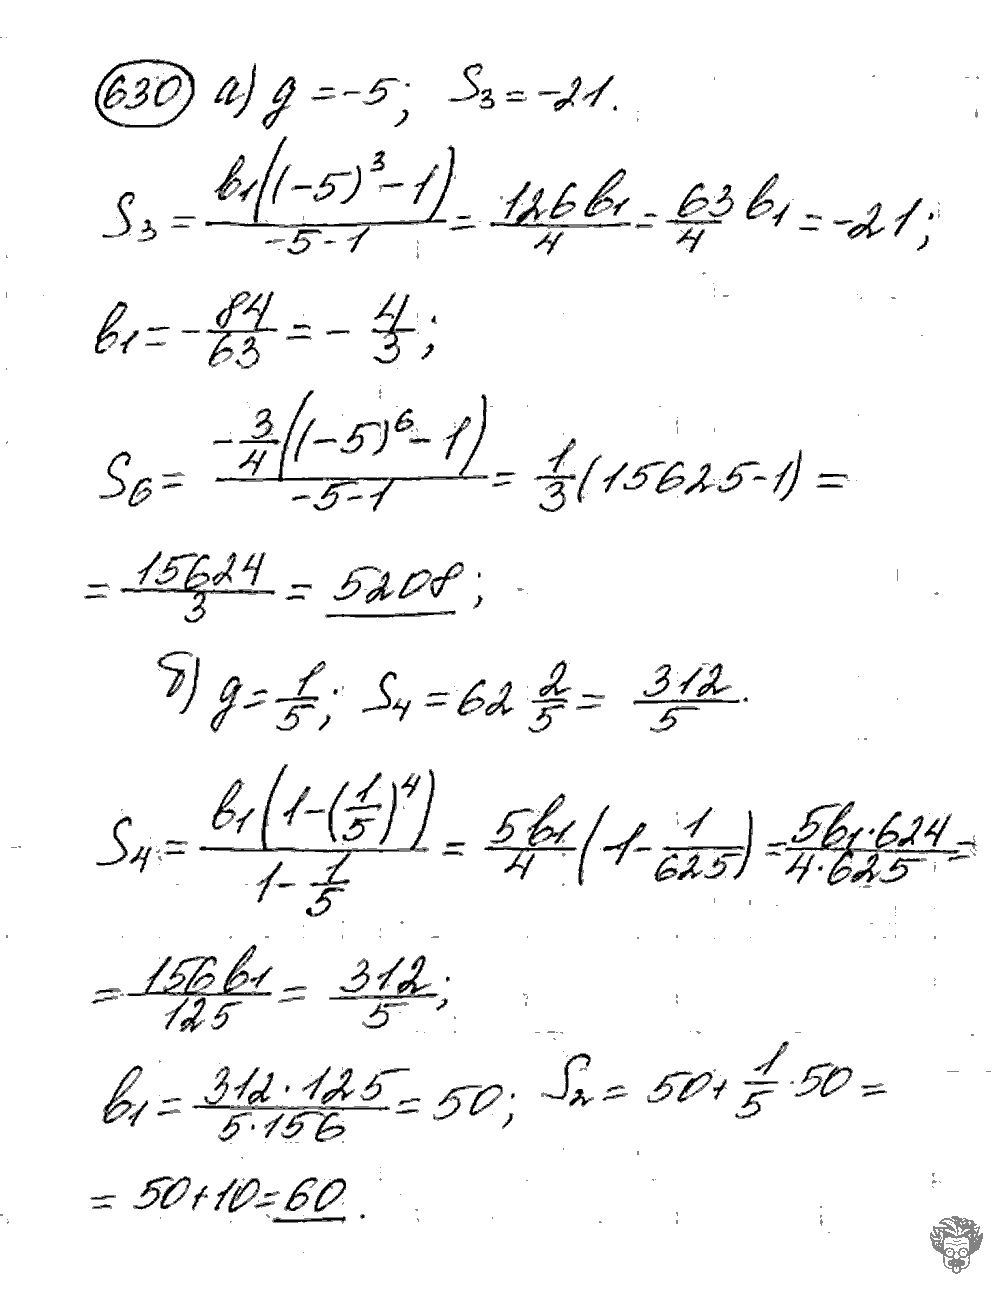 630 а) q = -5; S₃ = -21.
S₃ = b₁((-5)³-1)/(-5-1) = 126b₁/4 = 63/4 b₁ = -21;
b₁ = -84/63 = -4/3;
S₆ = -3/4((-5)⁶-1)/(-5-1) = 1/3(15625-1) =
= 15624/3 = 5208;
б) q = 1/5; S₄ = 62 2/5 = 312/5.
S₄ = b₁(1-(1/5)⁴)/(1-1/5) = 5b₁/4(1-1/625) = 5b₁·624/4·625 =
= 156b₁/125 = 312/5;
b₁ = 312·125/5·156 = 50; S₂ = 50+1/5·50 =
= 50+10 = 60.